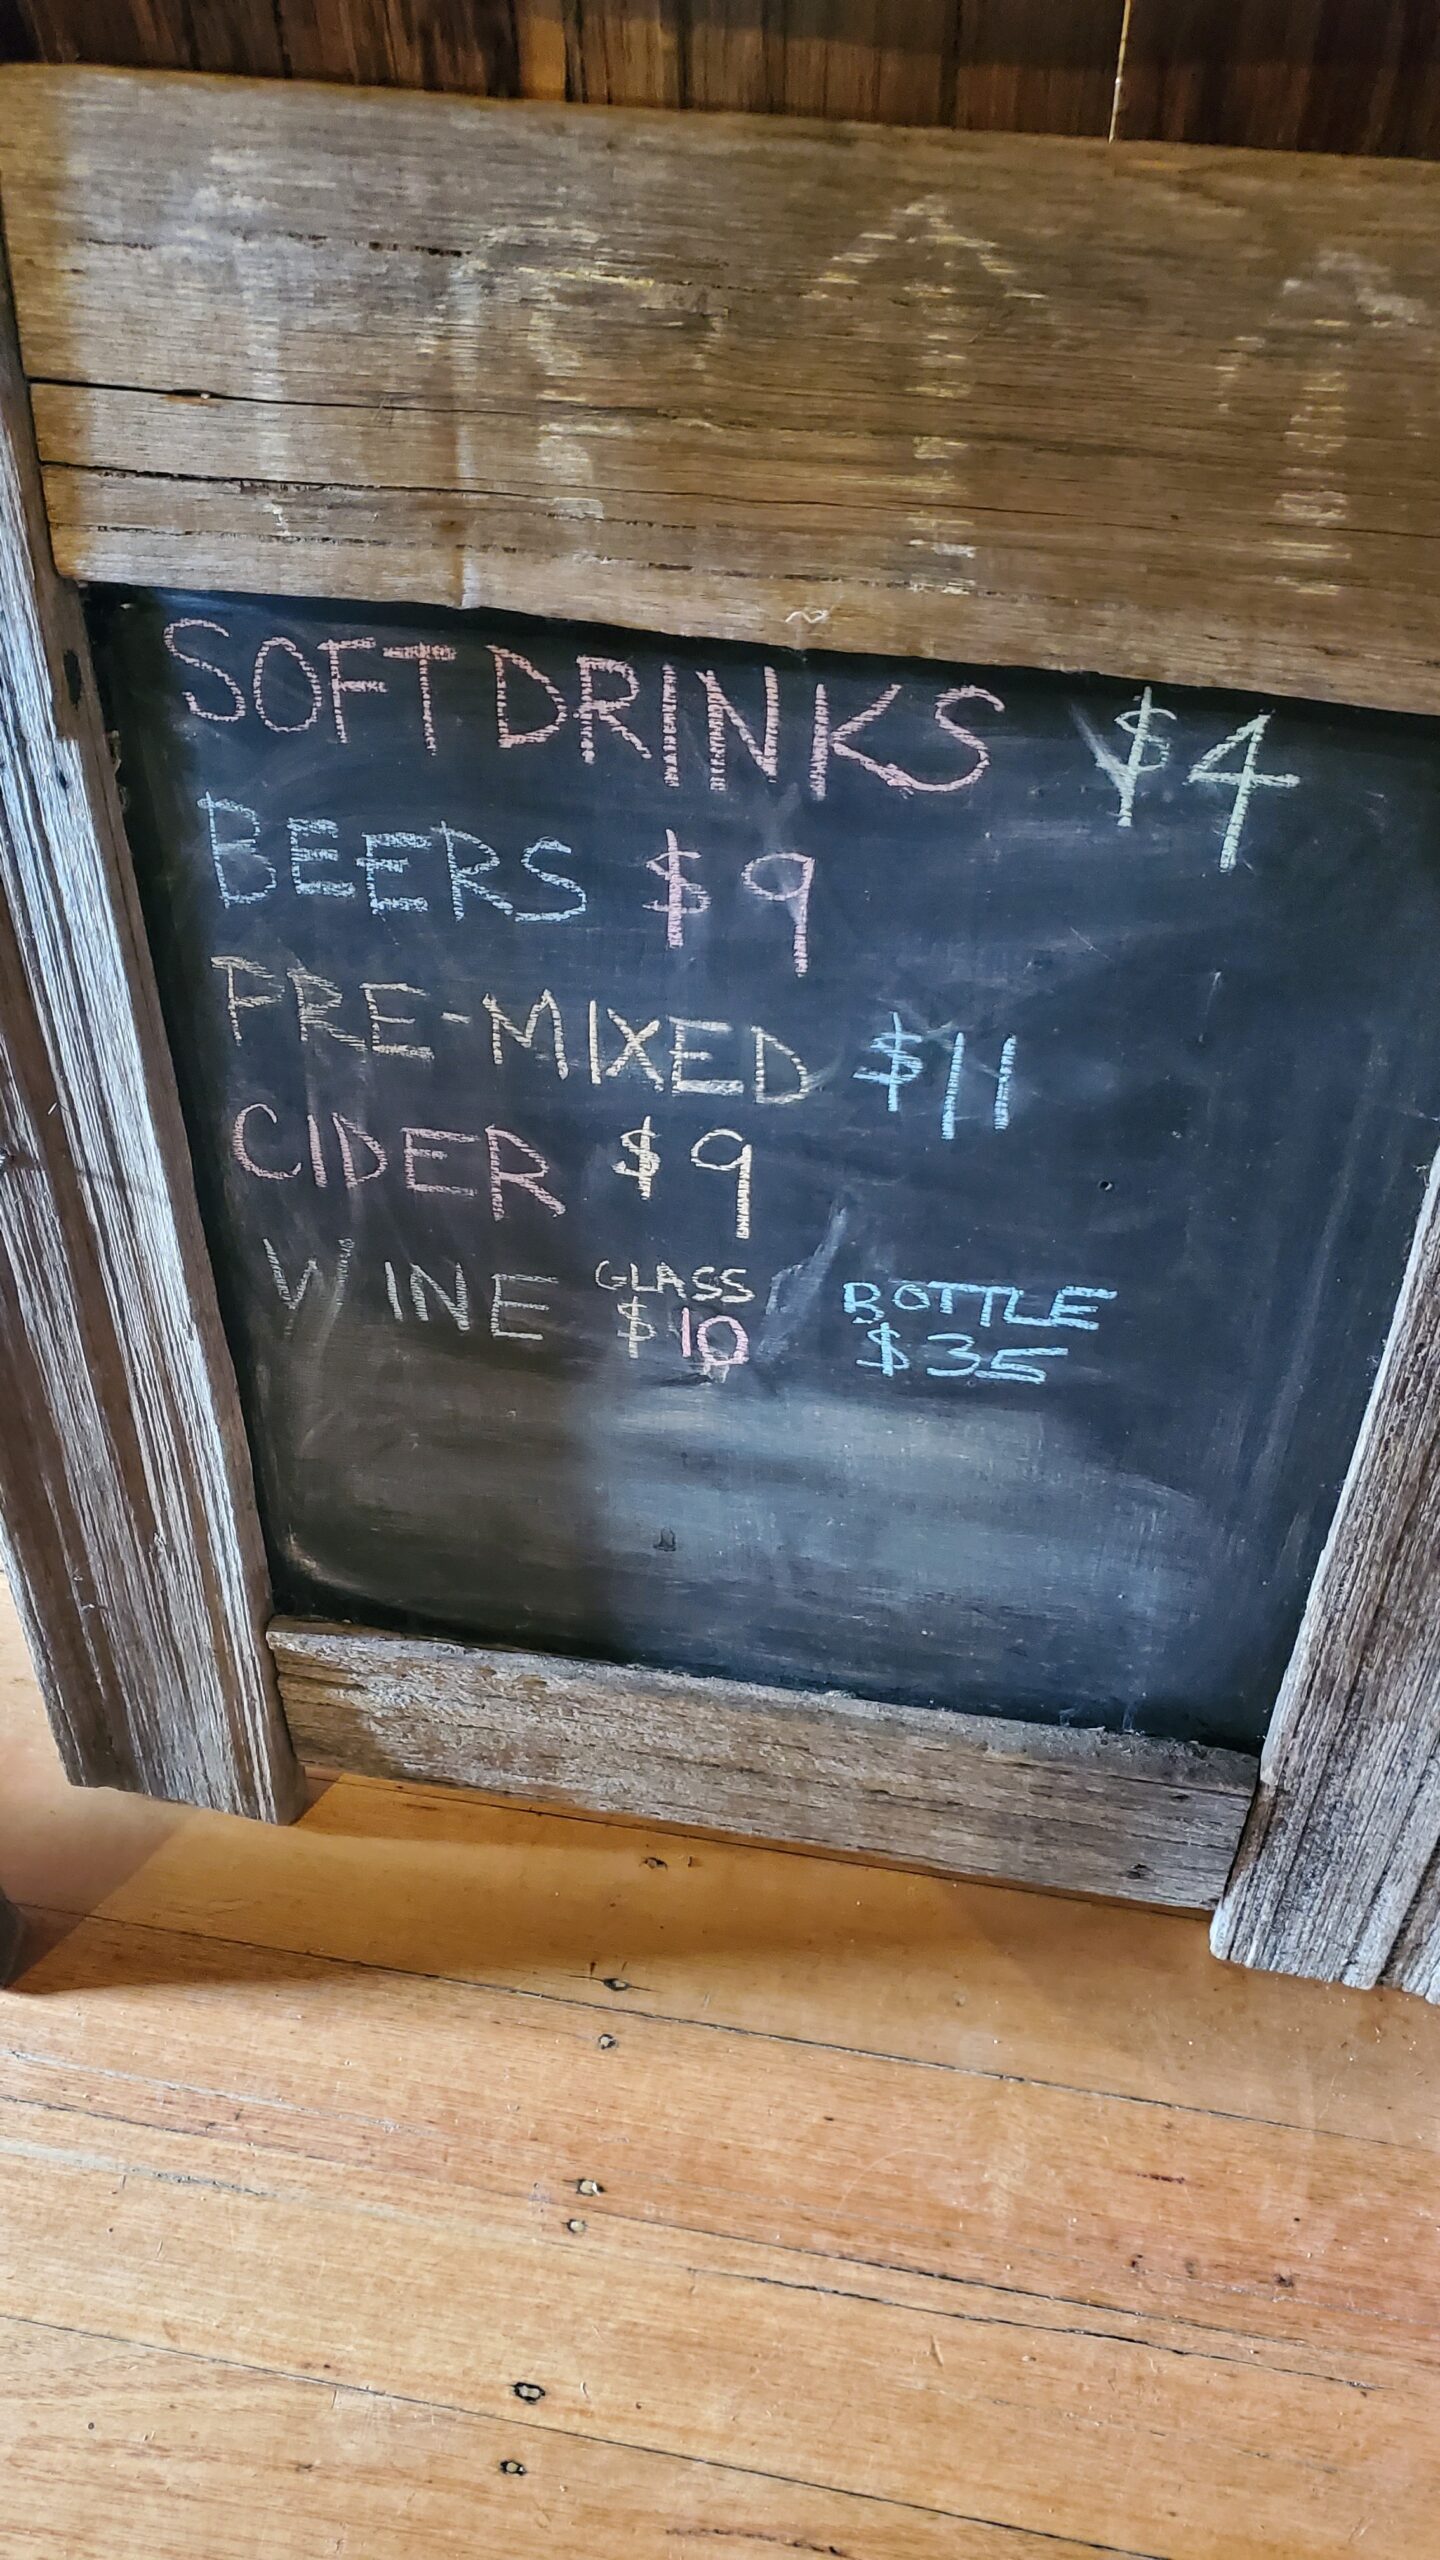 SOFT DRINKS $4
BEERS $9
PRE-MIXED $11
CIDER $9
WINE GLASS $10 BOTTLE $35